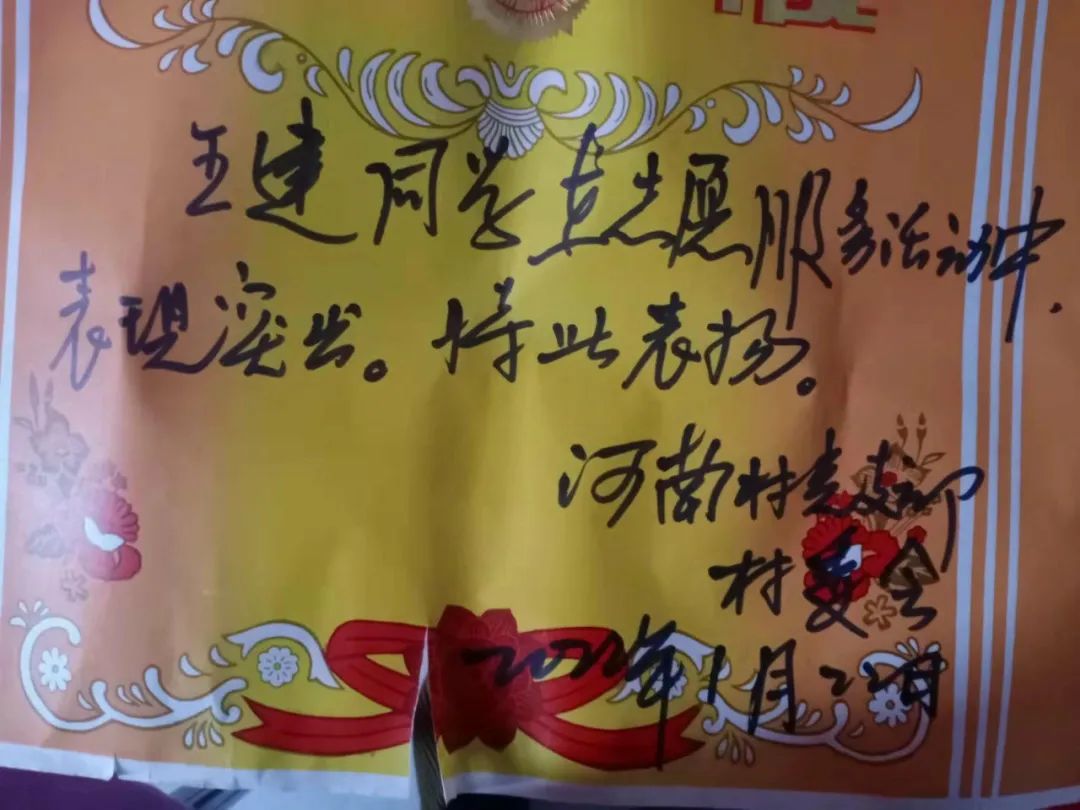 王建同学在志愿服务活动中,
表现突出。特此表扬。
河南村党支部
村委会
2022年1月22日